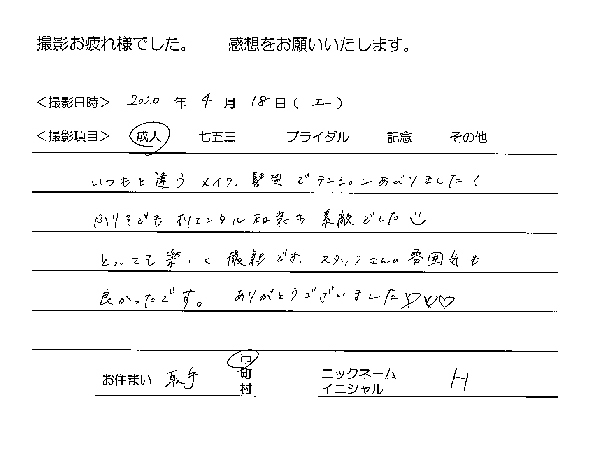 撮影お疲れ様でした。 感想をお願いいたします。
<撮影日時> 2020 年 4 月 18 日 ( 土 )
<撮影項目> 成人 七五三 ブライダル 記念 その他
いつもと違うメイク、髪型でテンションあがりました!
オリエンタル和装も素敵でした
とっても楽しく撮影でき、スタッフさんの雰囲気も
良かったです。 ありがとうございました♡♡♡
お住まい 取手 市 町 村 ニックネーム イニシャル H